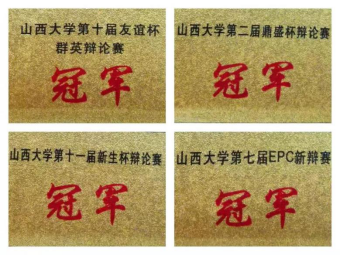 山西大学第十届友谊杯
群英辩论赛
冠军
山西大学第二届鼎盛杯辩论赛
冠军
山西大学第十一届新生杯辩论赛
冠军
山西大学第七届EPC新辩赛
冠军